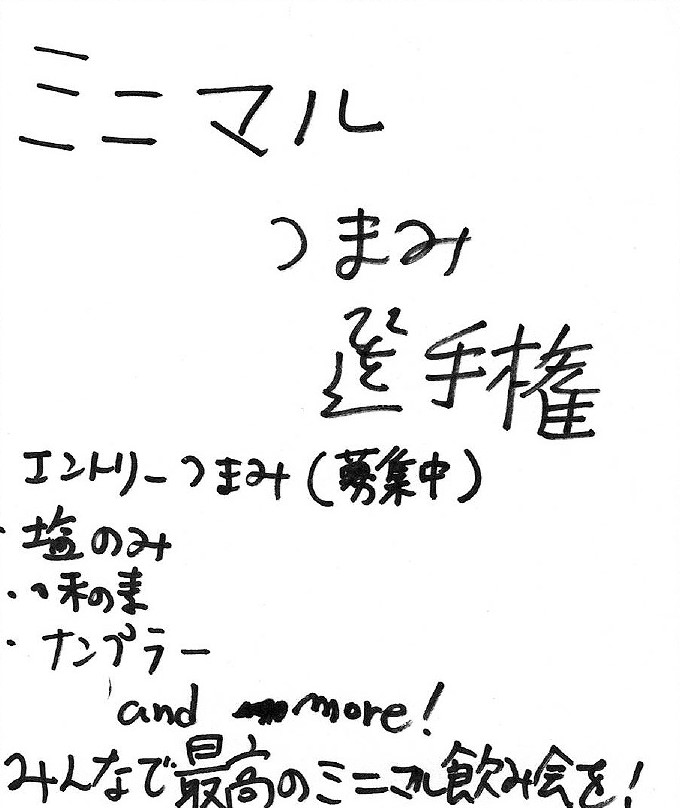 ミニマル
つまみ
選手権
エントリーつまみ(募集中)
・塩のみ
・味の素
・ナンプラー
and more!
みんなで最高のミニマル飲み会を!